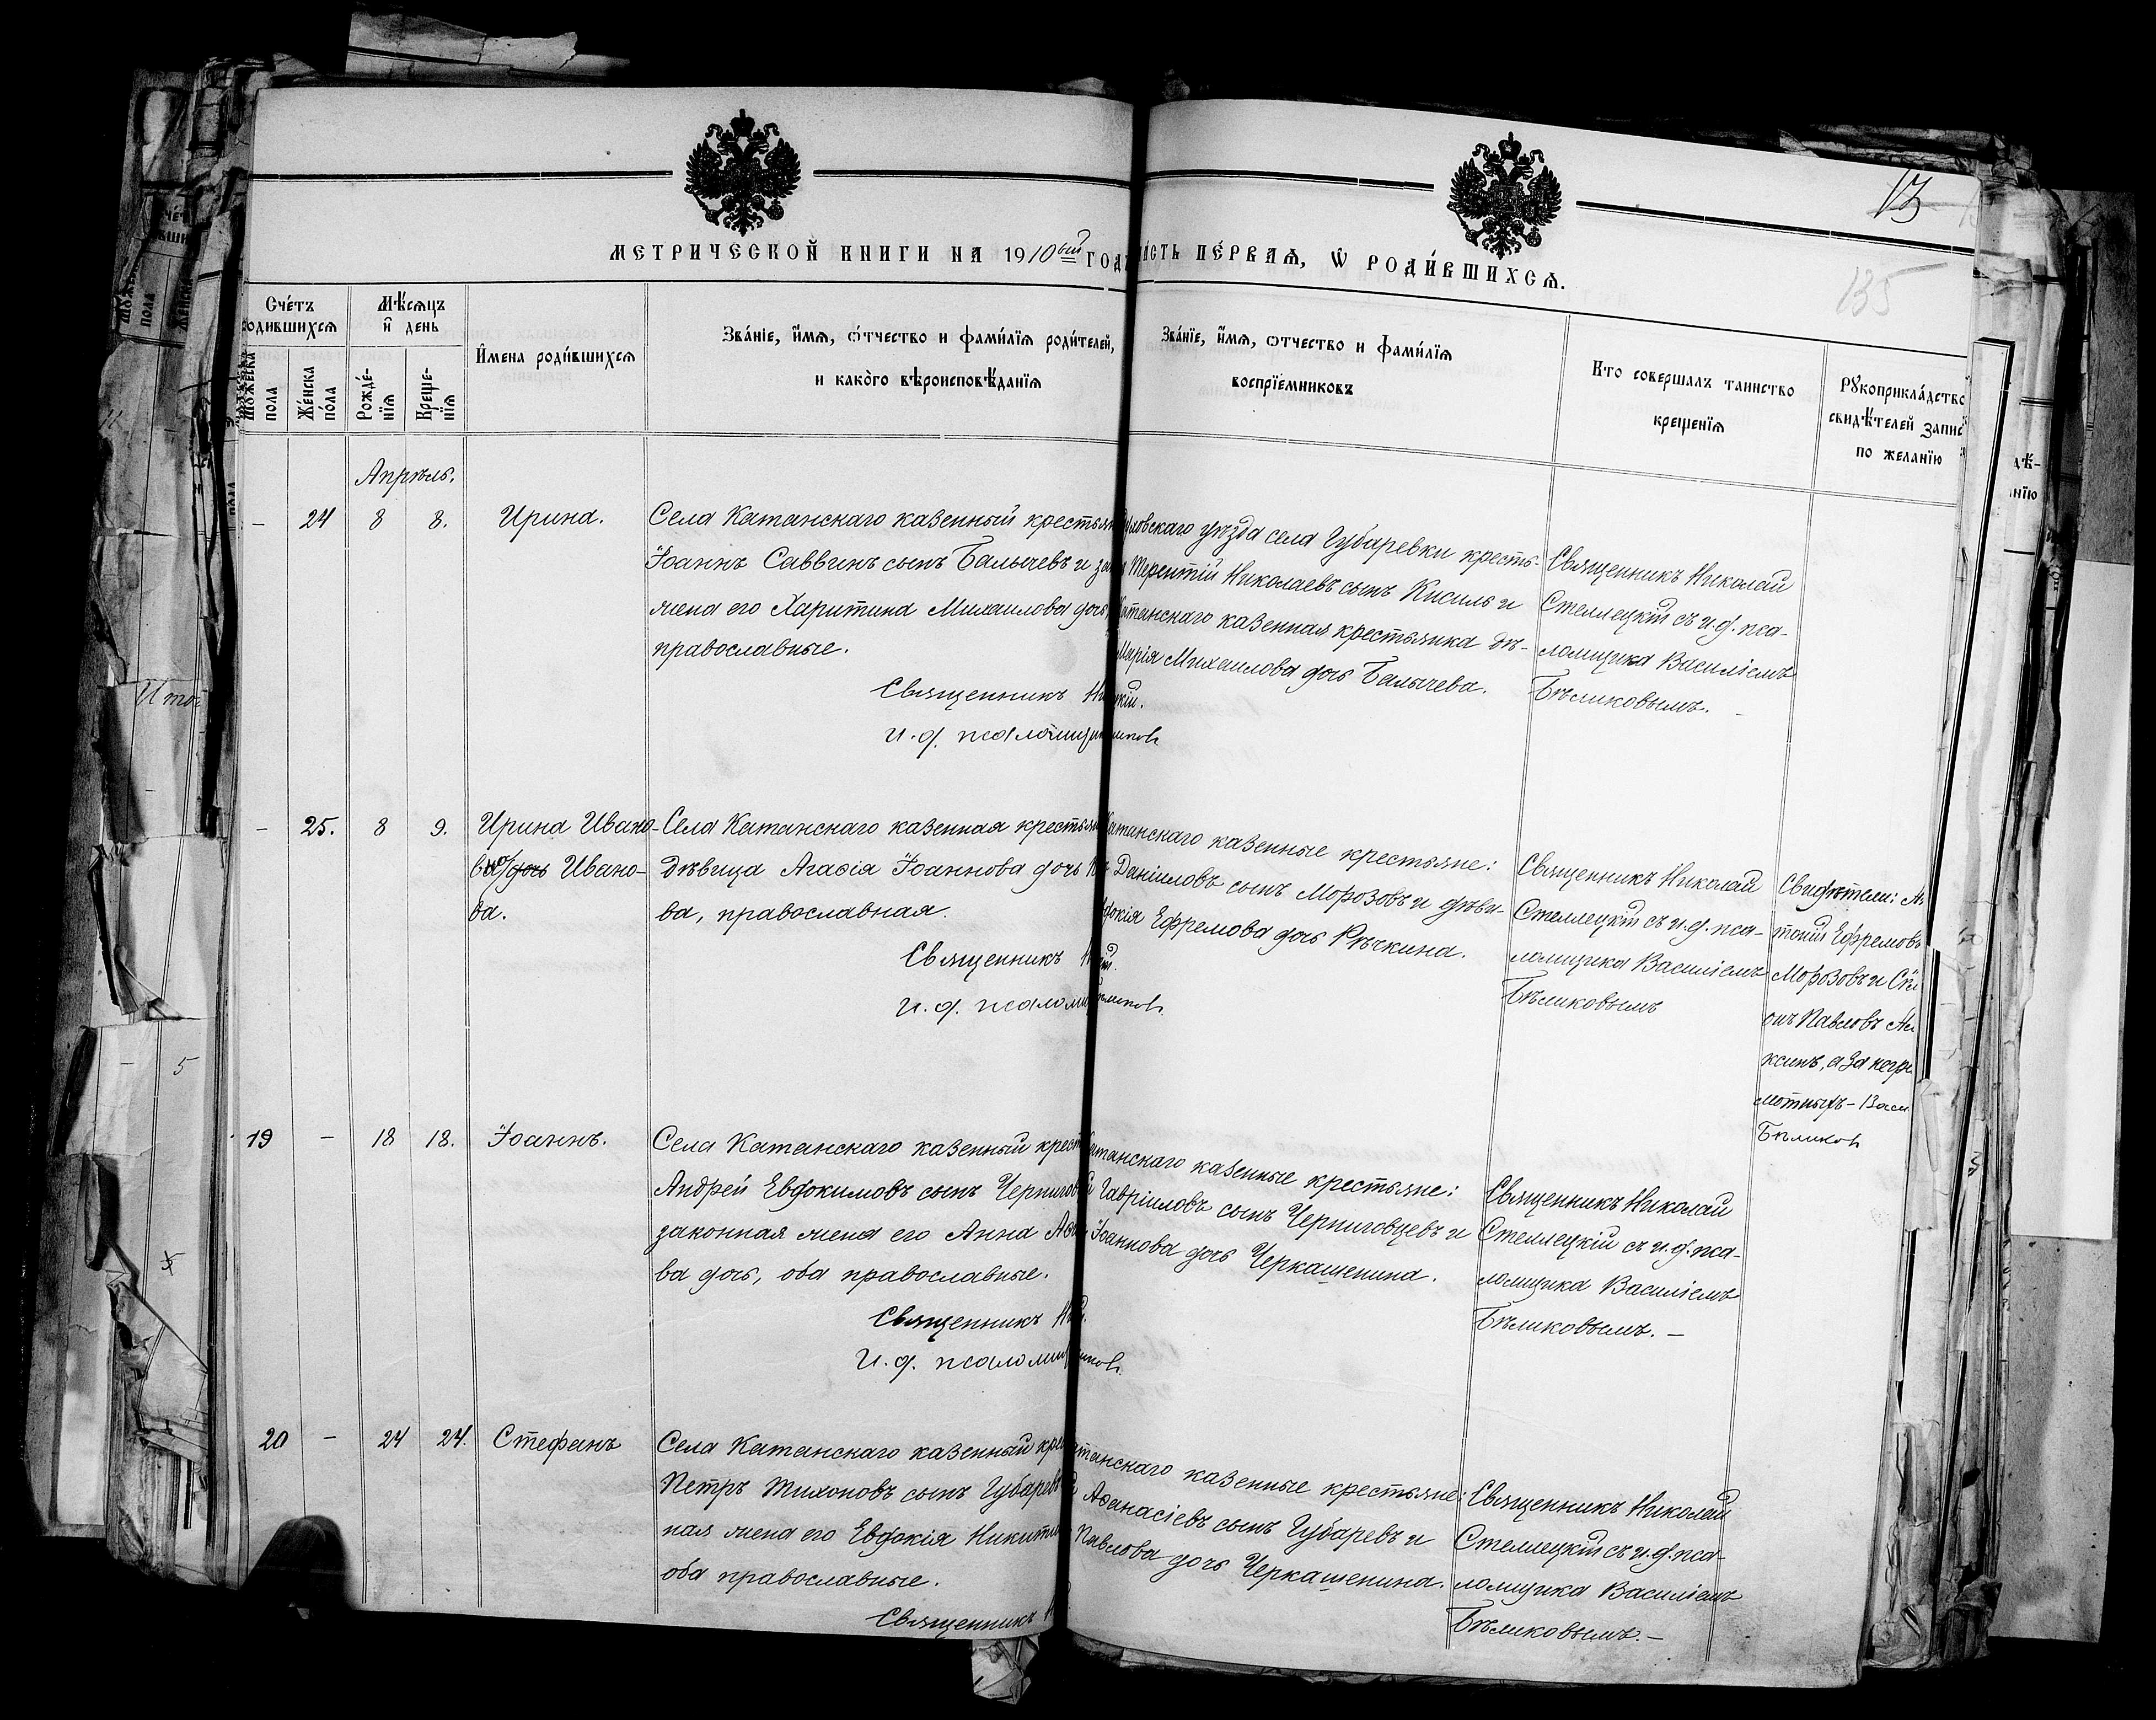 13
135
МЕТРИЧЕСКОЙ КНИГИ НА 1910ый ГОД
ЧАСТЬ ПЕРВАЯ, Ѡ РОДИ́ВШИХСѦ.
Сче́тъ родившихсѧ
Мѣ́сѧцъ и҆ день
И҆мена роди́вшихсѧ
Зва́нїе, и҆мѧ, ѻ҆тчество и фами́лїѧ роди́телей,
и како́го вѣроисповѣ́данїѧ
Зва́нїе, и҆мѧ, ѻтчество и фами́лїѧ
воспрїе́мниковъ
Кто совершалъ таинство
крещенїѧ
Рꙋкоприкла́дство
свидѣ́телей запис
по желанїю
Мꙋжеска пола
Же́нска по́ла
Рожде́нїѧ
Креще́нїѧ
Апрѣль.
– 24 8 8. Ирина.
Села Катанскаго казенный крестьян
Іоаннъ Саввинъ сынъ Балычевъ и за
жена его Харитина Михаилова дочь,
православные.
Священникъ Ни
и. д. псаломщи
ловскаго уѣзда села Губаревки кресть-
Терентій Николаевъ сынъ Кисиль и
Катанскаго казенная крестьянка дѣ-
Марія Михаилова дочь Балычева.
цкій.
иковъ
Священникъ Николай
Стеллецкій съ и. д. пса-
ломщика Василіемъ
Бѣликовымъ.
– 25. 8 9. Ирина Ивано-
дочь Ивано-
ва.
Села Катанскаго казенная крестьян
дѣвица Агаѳія Іоаннова дочь
ва, православная.
Священникъ Н
и. д. псаломщ
Катанскаго казенные крестьяне:
Даніиловъ сынъ Морозовъ и дѣви-
докія Ефремова дочь Рѣчкина.
ликовъ
Священникъ Николай
Стеллецкій съ и. д. пса-
ломщика Василіемъ
Бѣликовымъ
Свидѣтели:
Ефремовъ
Морозовъ и
онъ Павловъ
а за негра
мотныхъ – Васи
Бѣликовъ
19 – 18 18. Іоаннъ.
Села Катанскаго казенный крест
Андрей Евдокимовъ сынъ Чернигов
законная жена его Анна
ва дочь, оба православные.
Священникъ Н
И. д. псаломщ
Катанскаго казенные крестьяне:
Гавріиловъ сынъ Черниговцевъ и
Іоаннова дочь Черкашенина.
иковъ
Священникъ Николай
Стеллецкій съ и. д. пса-
ломщика Василіемъ
Бѣликовымъ. –
20 – 24 24. Стефанъ
Села Катанскаго казенный кре
Петръ Тихоновъ сынъ Губарев
ная жена его Евдокія Никити
оба православные.
Священникъ Н
атанскаго казенные крестьяне:
Аѳанасіевъ сынъ Губаревъ и
Павлова дочь Черкашенина.
Священникъ Николай
Стеллецкій съ и. д. пса-
ломщика Василіемъ
Бѣликовымъ. –